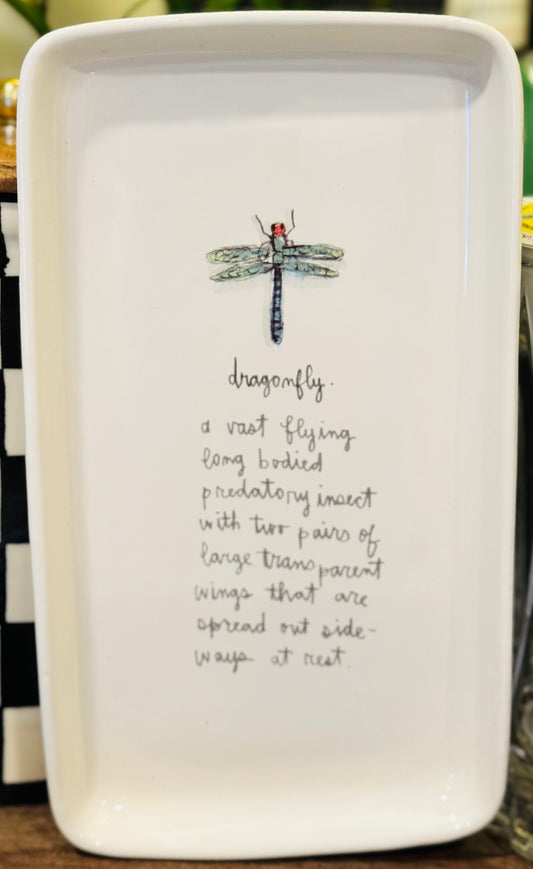 dragonfly.
a vast flying
long bodied
predatory insect
with two pairs of
large transparent
wings that are
spread out side-
ways at rest.